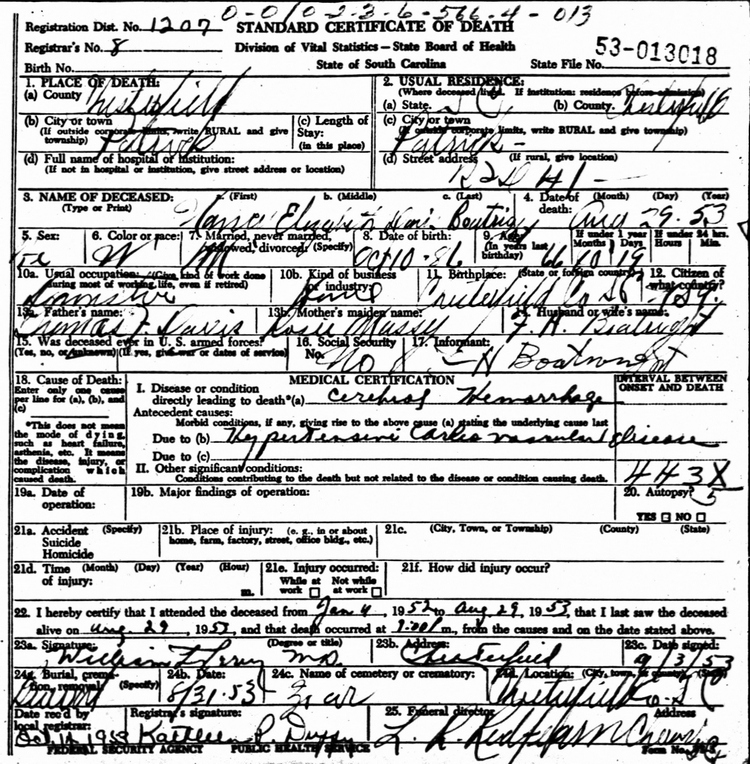 0-0/0-2-3-6-566-4-013
Registration Dist. No. 1207 STANDARD CERTIFICATE OF DEATH
Registrar's No. 8 Division of Vital Statistics—State Board of Health 53-013018
Birth No. State of South Carolina State File No.
1. PLACE OF DEATH: 2. USUAL RESIDENCE:
(Where deceased lived. If institution: residence before admission)
(a) County Chesterfield (a) State S C (b) County Chesterfield
(b) City or town (c) Length of (c) City or town
(If outside corporate limits, write RURAL and give Stay: (If outside corporate limits, write RURAL and give township)
township) Patrick (in this place) Patrick -
(d) Full name of hospital or institution: (d) Street address (If rural, give location)
(If not in hospital or institution, give street address or location)
3. NAME OF DECEASED: a. (First) b. (Middle) c. (Last) 4. Date of (Month) (Day) (Year)
(Type or Print) Elizabeth death: Aug 29-53
5. Sex: 6. Color or race: 7. Married, never married, 8. Date of birth: 9. Age If under 1 year If under 24 hrs.
widowed, divorced: (Specify) (In years last birthday) Months Days Hours Min.
W M Oct 10-86 66 10 19
10a. Usual occupation: (Give kind of work done 10b. Kind of business 11. Birthplace: (State or foreign country) 12. Citizen of
during most of working life, even if retired) or industry: what country?
Domestic Home Chesterfield Co S C
13a. Father's name: 13b. Mother's maiden name: 14. Husband or wife's name:
Thomas F Davis Rosie Massey F. H. Boatwright
15. Was deceased ever in U. S. armed forces? 16. Social Security 17. Informant:
(Yes, no, or unknown) (If yes, give war or dates of service) No. No F H Boatwright
18. Cause of Death: MEDICAL CERTIFICATION INTERVAL BETWEEN
Enter only one cause I. Disease or condition ONSET AND DEATH
per line for (a), (b), and directly leading to death*(a) Cerebral Hemorrhage
(c) Antecedent causes:
*This does not mean Morbid conditions, if any, giving rise to the above cause (a) stating the underlying cause last
the mode of dying, Due to (b) Hypertensive Cardiovascular disease
such as heart failure,
asthenia, etc. It means Due to (c)
the disease, injury, or II. Other significant conditions:
complication which Conditions contributing to the death but not related to the disease or condition causing death.
caused death. 443X
19a. Date of 19b. Major findings of operation: 20. Autopsy? 5
operation: YES NO
21a. Accident (Specify) 21b. Place of injury: (e. g., in or about 21c. (City, Town, or Township) (County) (State)
Suicide home, farm, factory, street, office bldg., etc.)
Homicide
21d. Time (Month) (Day) (Year) (Hour) 21e. Injury occurred: 21f. How did injury occur?
of injury: m. While at work Not while at work
22. I hereby certify that I attended the deceased from Jan 4, 1952 to Aug 29, 1953, that I last saw the deceased
alive on Aug. 29, 1953, and that death occurred at m., from the causes and on the date stated above.
23a. Signature: (Degree or title) 23b. Address: 23c. Date signed:
William L Perry M.D. Chesterfield 9/3/53
24a. Burial, cremation, removal (Specify) 24b. Date: 24c. Name of cemetery or crematory: 24d. Location: (City, town, or county) (State)
Burial 8/31-53 Zoar Chesterfield Co-S C
Date rec'd by Registrar's signature: 25. Funeral director Address
local registrar:
Kathleen P. Duffy L. R. Redfearn Cheraw
FEDERAL SECURITY AGENCY PUBLIC HEALTH SERVICE Form No.